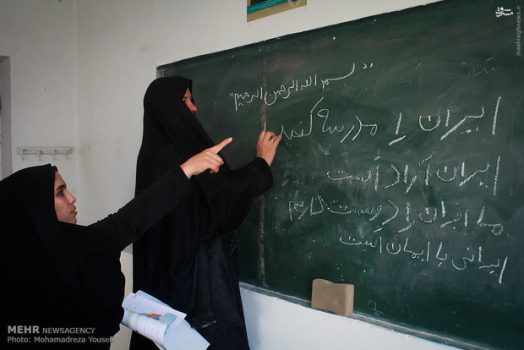 مشرق
mashreghnews.ir
"بسم الله الرحمن الرحیم"
ایران را مدرسه کنید
ایران آزاد است
ما ایران را دوست داریم
ایرانی با ایمان است
MEHR NEWSAGENCY
Photo: Mohamadreza Yousef